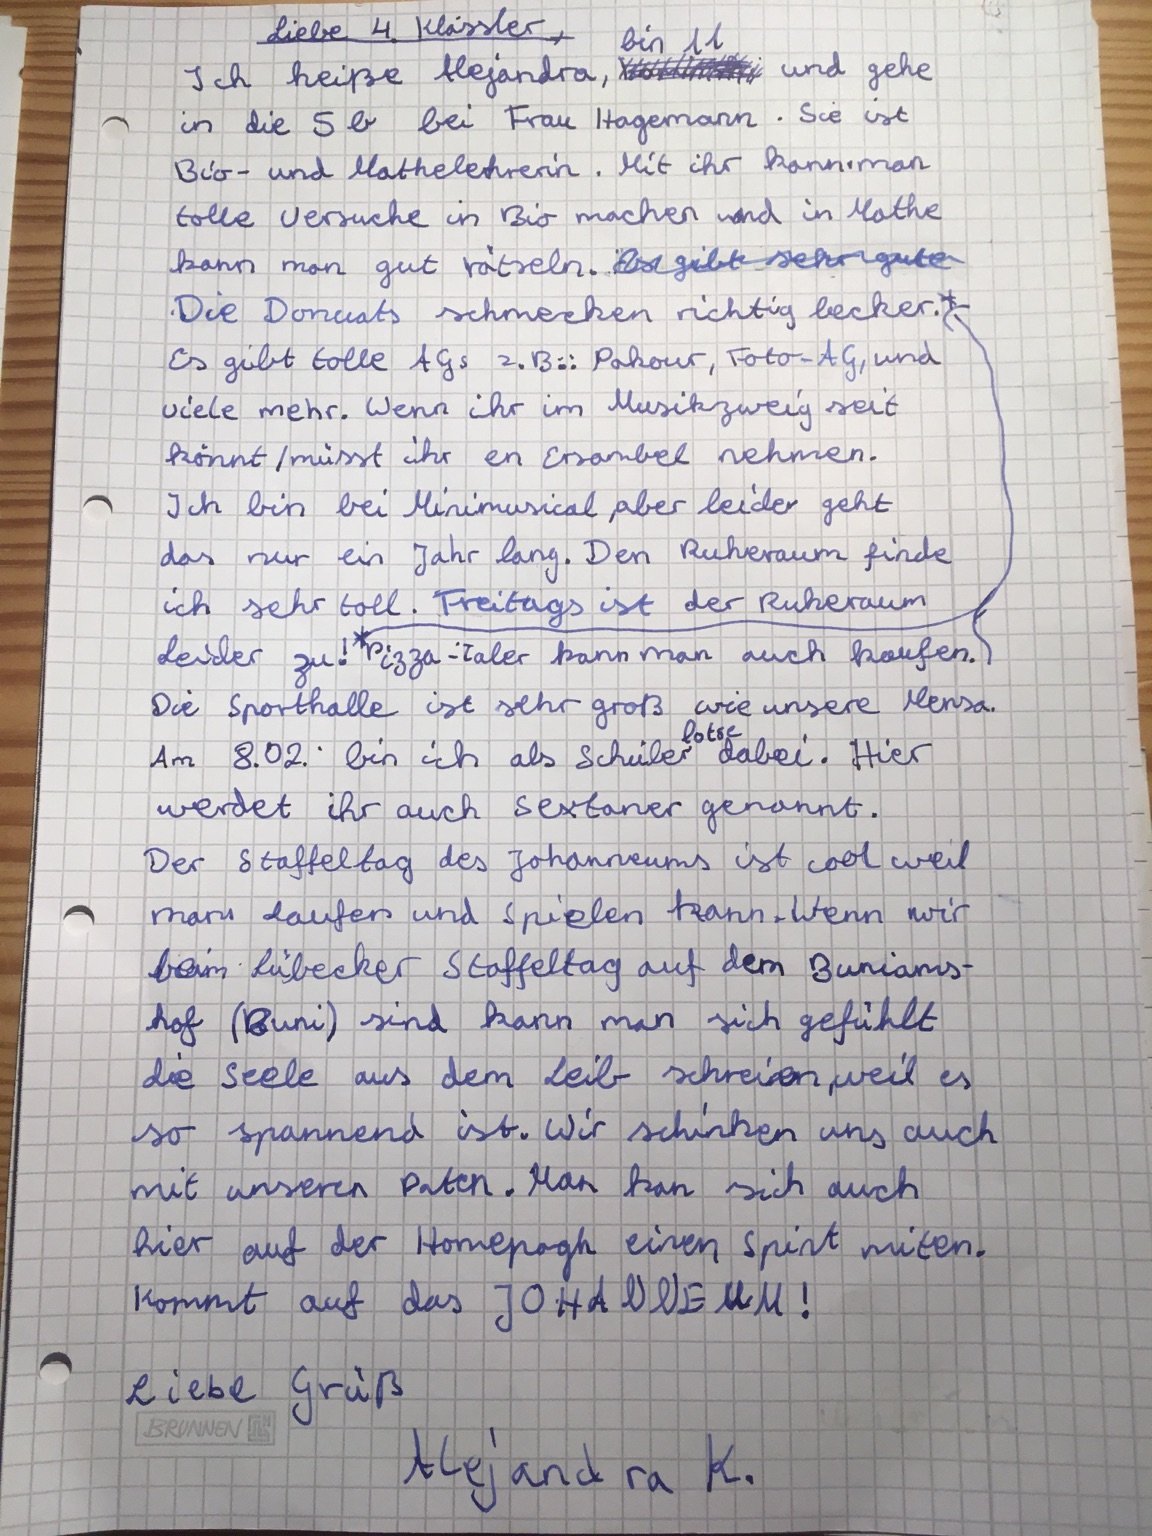 Liebe 4. Klässler,
bin 11
Ich heiße Alejandra, und gehe
in die 5b bei Frau Hagemann. Sie ist
Bio- und Mathelehrerin. Mit ihr kann man
tolle Versuche in Bio machen und in Mathe
kann man gut rätseln. Es gibt sehr gute
Die Donuats schmecken richtig lecker.*
Es gibt tolle AGs z.B.: Pakour, Foto-AG, und
viele mehr. Wenn ihr im Musikzweig seit
könnt/müsst ihr en Ensambel nehmen.
Ich bin bei Minimusical, aber leider geht
das nur ein Jahr lang. Den Ruheraum finde
ich sehr toll. Freitags ist der Ruheraum
Leider zu! *Pizza-Taler kann man auch kaufen.
Die Sporthalle ist sehr groß wie unsere Mensa.
lotse
Am 8.02. bin ich als Schüler dabei. Hier
werdet ihr auch Sextaner genannt.
Der Staffeltag des Johanneums ist cool weil
man Laufen und Spielen kann. Wenn wir
beim Lübecker Staffeltag auf dem Buniams-
hof (Buni) sind kann man sich gefühlt
die Seele aus dem Leib schreien, weil es
so spannend ist. Wir schinken uns auch
mit unseren Paten. Man kan sich auch
hier auf der Homepagh einen Spint miten.
Kommt auf das JOHANNEUM!
Liebe Grüß
BRUNNEN
Alejandra K.